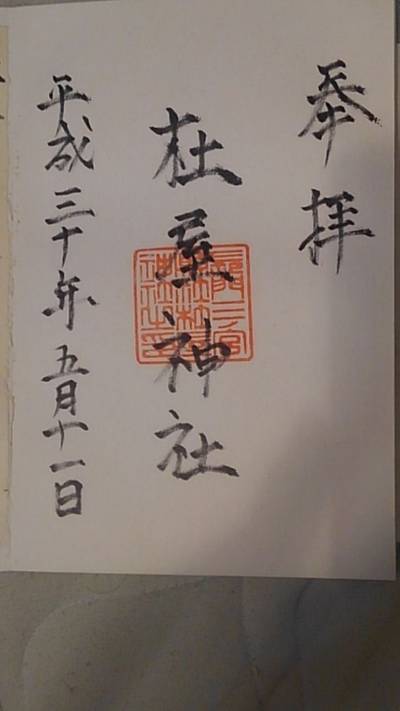 奉拝
杜屋神社
平成三十年五月十一日